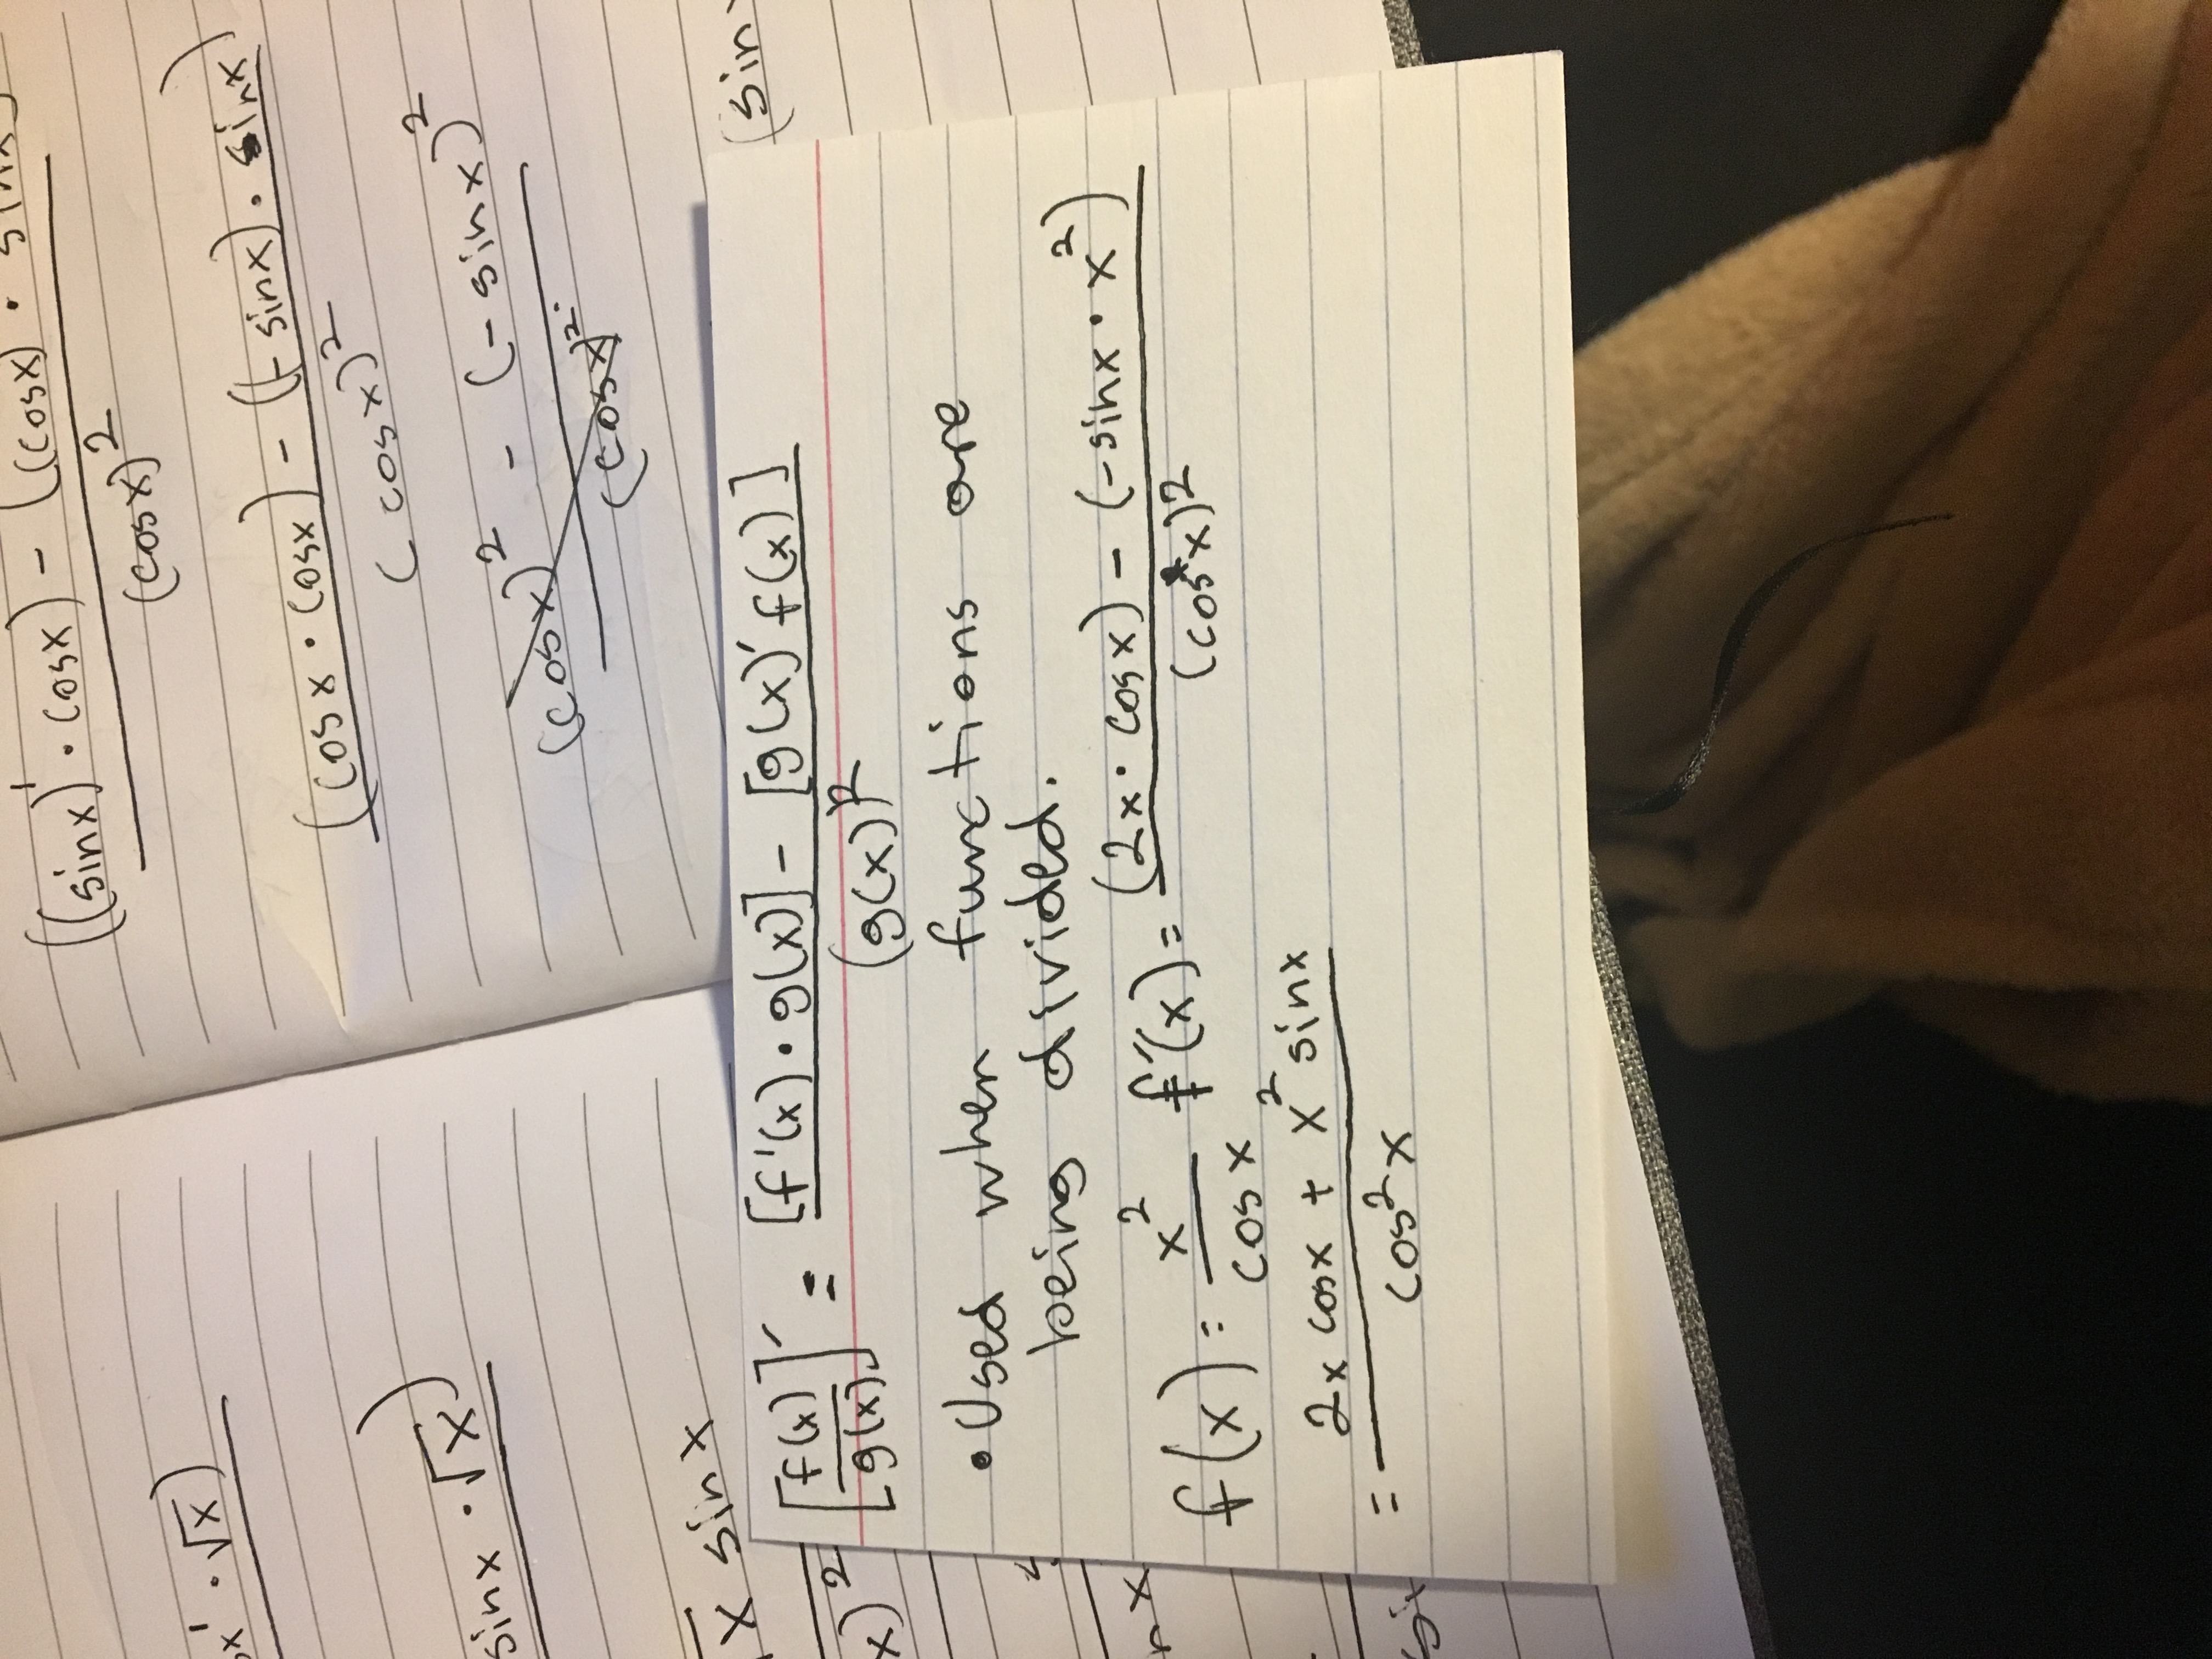 x' · √x)
sinx · √x)
x sinx
x)²
nx
si
((sinx)' · cosx) - ((cosx) · sinx)
(cosx)²
(cosx · cosx) - (-sinx) · sinx)
(cosx)²
(cosx)² - (-sinx)²
(cosx)²
(sin
[f(x)/g(x)]' = [f'(x) · g(x)] - [g(x)' f(x)]
(g(x))²
• Used when functions are
being divided.
f(x) = x²/cosx f'(x) = (2x · cosx) - (-sinx · x²)
(cosx)²
= 2x cosx + x² sinx
cos²x